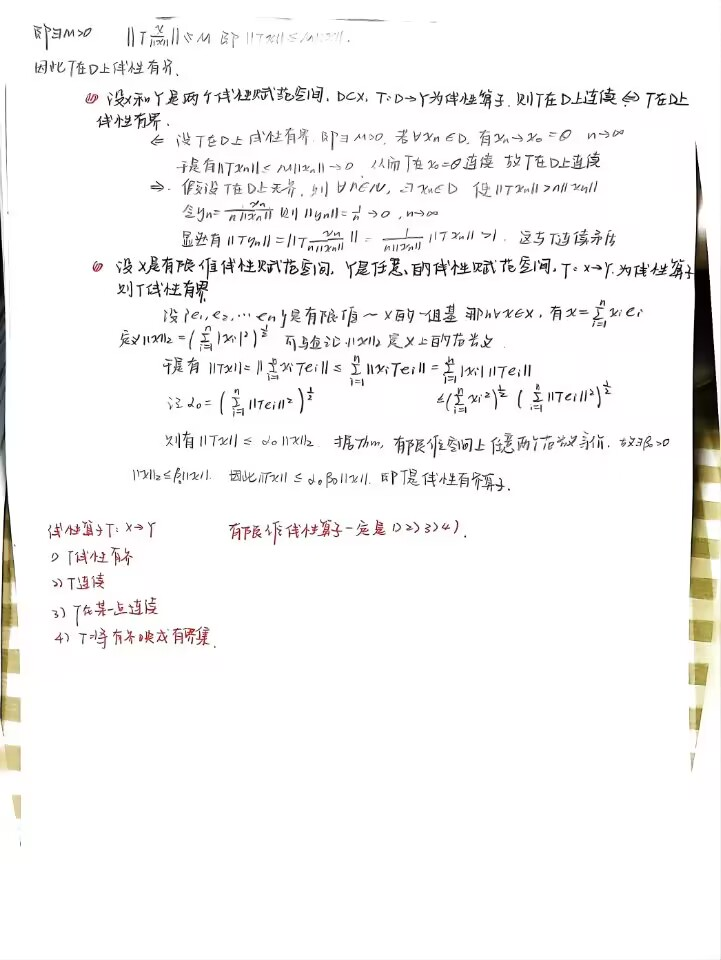 即∃M>0 ||T x/||x|| || ≤ M 即 ||Tx|| ≤ M||x||.
因此T在D上线性有界.
(5) 设X和Y是两个线性赋范空间, D⊂X, T:D→Y为线性算子, 则T在D上连续 ⇔ T在D上
线性有界.
⇐ 设T在D上线性有界, 即∃M>0, 若∀xn∈D, 有xn→x0=θ n→∞
于是有||Txn|| ≤ M||xn||→0, 从而T在x0=θ连续 故T在D上连续
⇒. 假设T在D上无界, 则 ∀n∈N, ∃xn∈D 使||Txn||>n||xn||
令yn= xn/(n||xn||) 则||yn||=1/n→0, n→∞
显然有||Tyn||=||T xn/(n||xn||)|| = 1/(n||xn||) ||Txn||>1. 这与T连续矛盾
(6) 设X是有限维线性赋范空间, Y是任意的线性赋范空间, T:X→Y, 为线性算子
则T线性有界
设{e1,e2,…en}是有限维~X的一组基 那么∀x∈X, 有x=∑_{i=1}^n xiei
定义||x||2=(∑_{i=1}^n |xi|²)^{1/2} 可验证||x||2定义上的范数.
于是有||Tx||=||∑_{i=1}^n xiTei|| ≤ ∑_{i=1}^n ||xiTei|| = ∑_{i=1}^n |xi| ||Tei||
记α0=(∑_{i=1}^n ||Tei||²)^{1/2} ≤(∑_{i=1}^n xi²)^{1/2} (∑_{i=1}^n ||Tei||²)^{1/2}
则有||Tx|| ≤ α0||x||2. 据Thm, 有限维空间上任意两个范数等价, 故∃β0>0
||x||2≤β0||x||. 因此||Tx|| ≤ α0β0||x||. 即T是线性有界算子.
线性算子T:X→Y 有限维线性算子一定是1)2)3)4).
1) T线性有界
2) T连续
3) T在某一点连续
4) T将有界映成有界集.